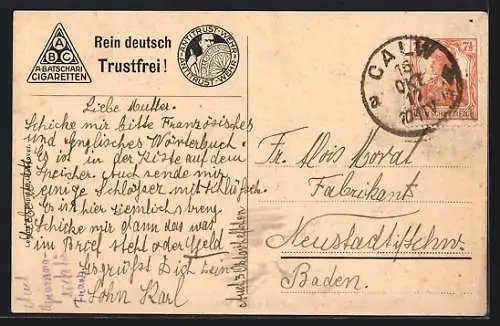 ABC
A·BATSCHARI
CIGARETTEN
Rein deutsch
Trustfrei!
·ANTITRUST-WEHR·
ANTITRUST-WEHR
CALW
15
OKT
a
7½
Liebe Mutter.
Schicke mir bitte Französisches
und Englisches Wörterbuch.
Es ist in der Kiste auf dem
Speicher. Auch sende mir
einige Schlösser mit
Es ist hier ziemlich streng
Schicke mir dann das was
im Brief steht oder Geld
Es grüßt Dich Dein
Sohn Karl
Fr. Alois Morat
Fabrikant
Neustadt i/Schw.
Baden.